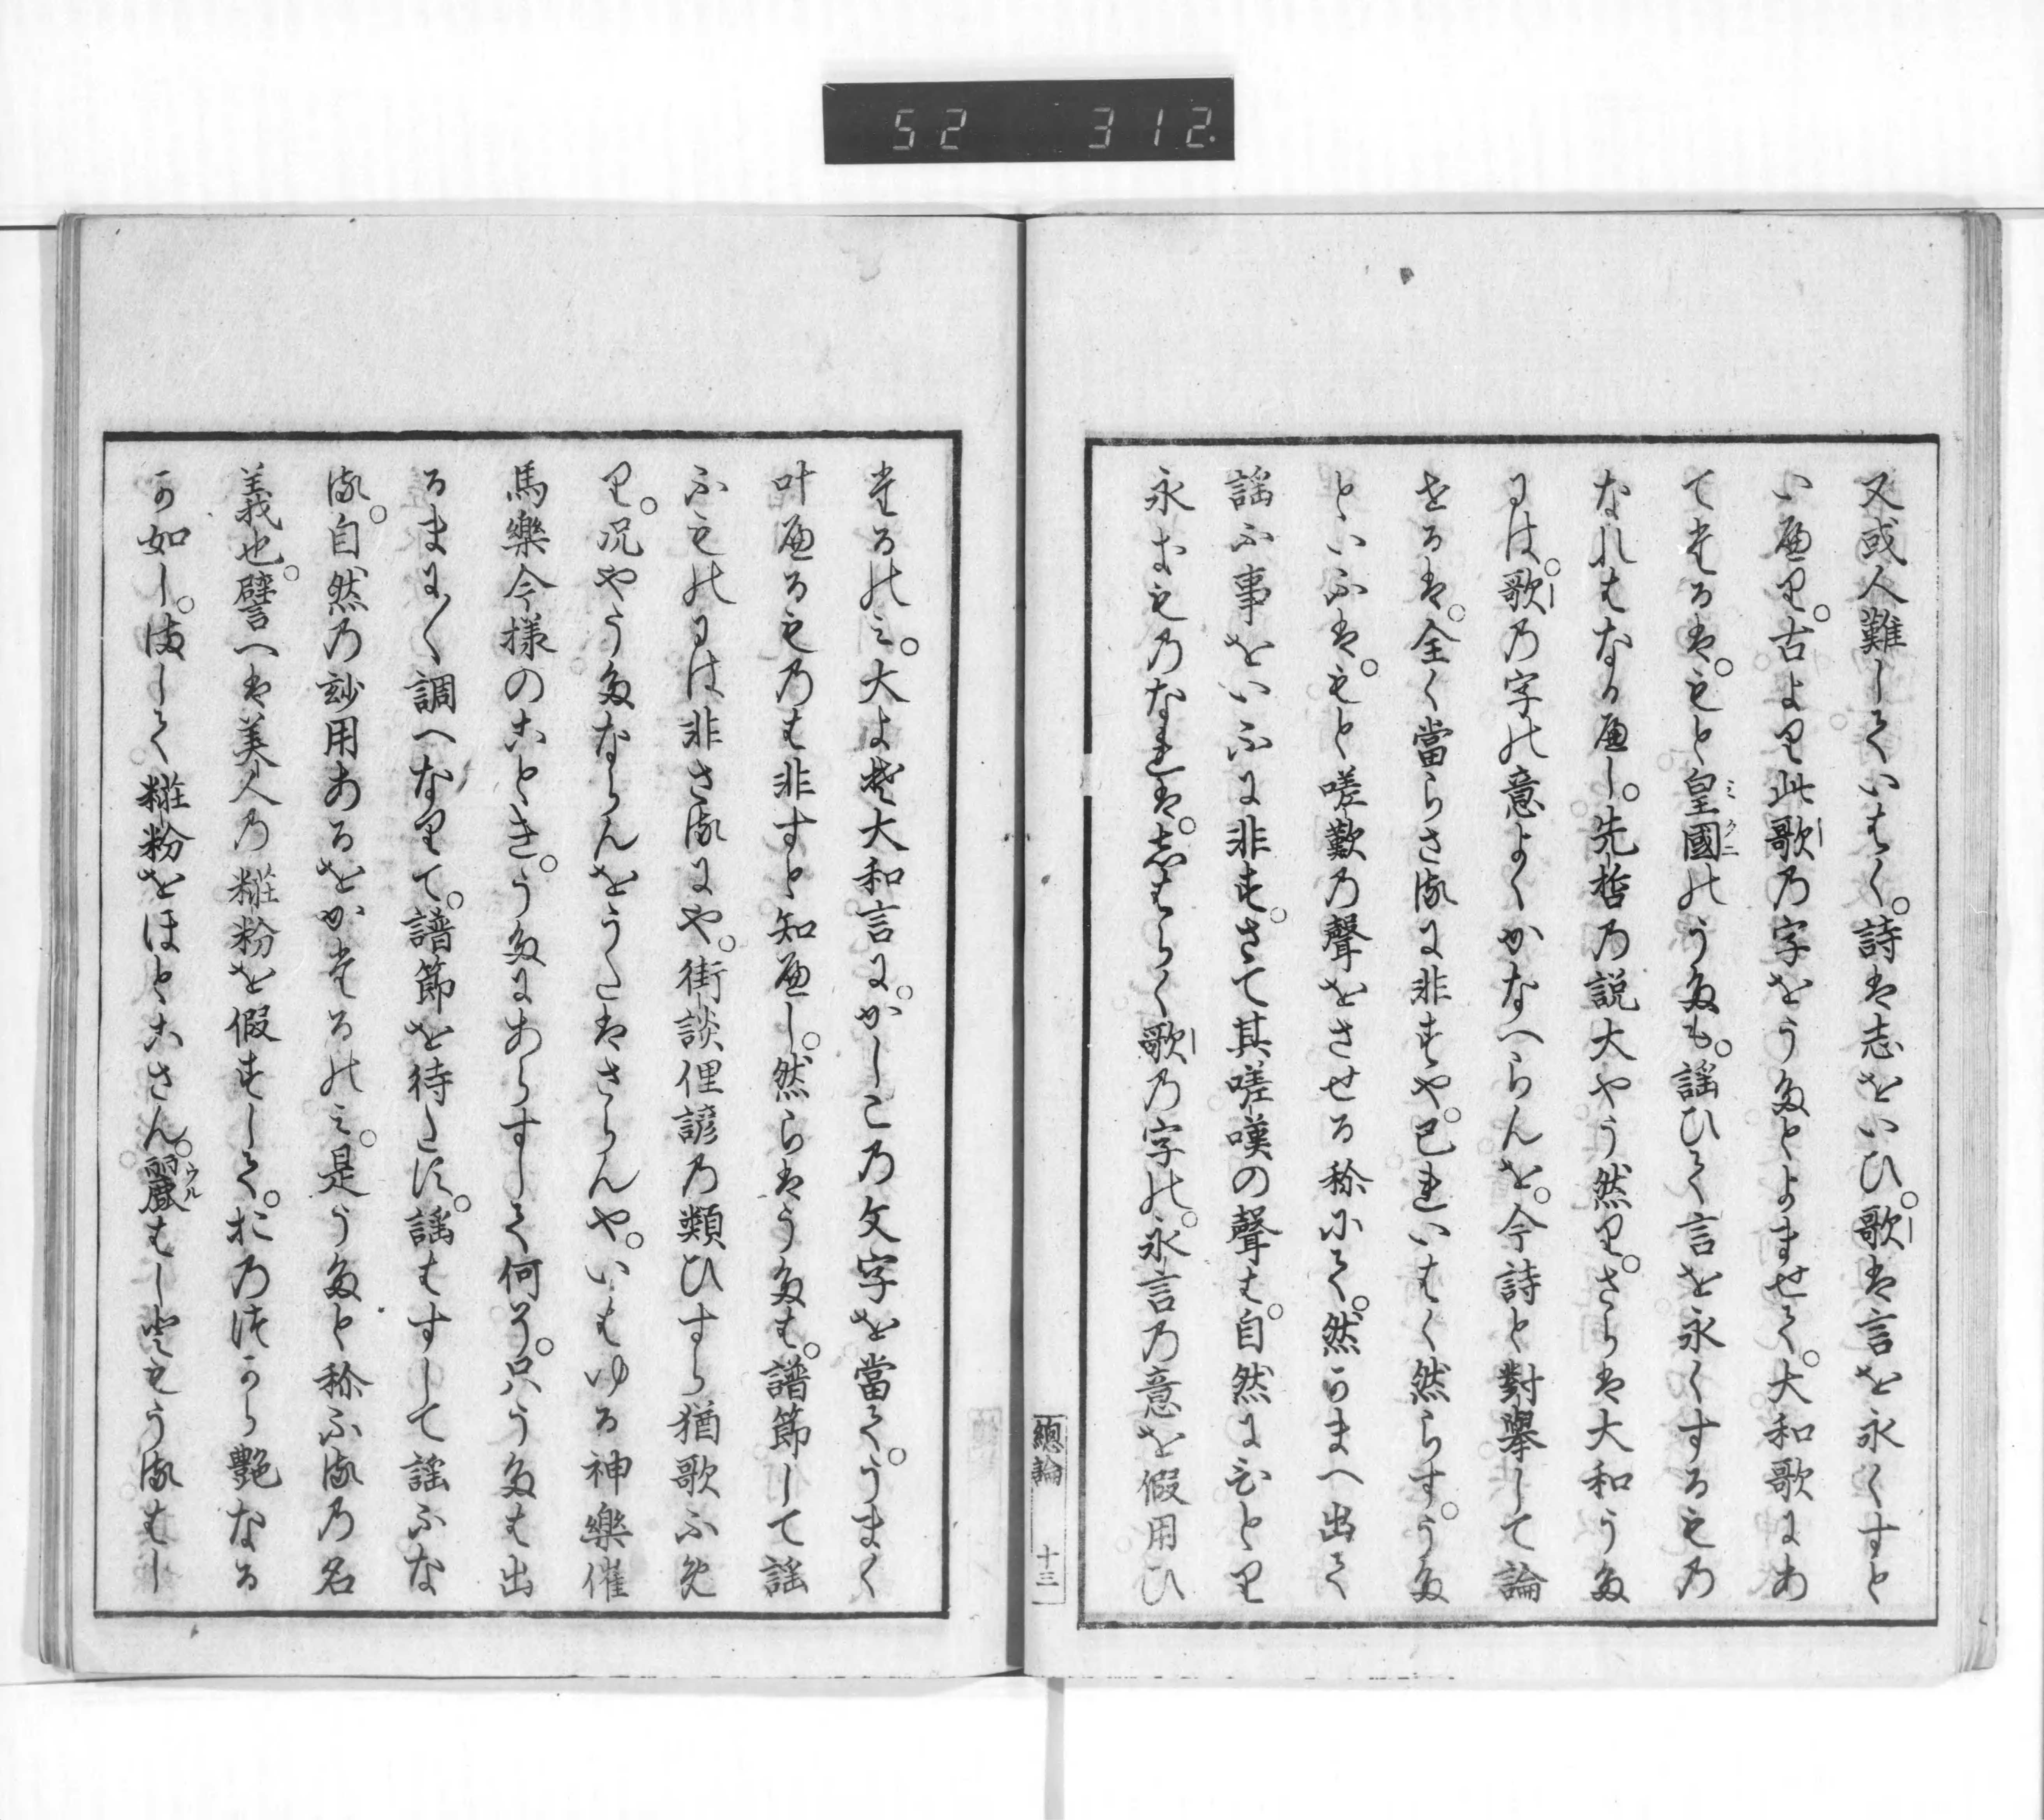 52 312.
又或人難していはく。詩は志をいひ。歌は言を永くすと
いへり。古より此歌の字をうたとよませて。大和歌にあ
てたるは。もと皇國のうたも。謡ひて言を永くするもの
ミクニ
なればなるべし。先哲の説大やう然り。さらは大和うた
には。歌の字の意よくかなへらんを。今詩と對擧して論
せるは。全く當らさるに非すや。己レいはく然らす。うた
といふは。もと嗟歎の聲をさせる称にて。然うまへ出て
謡ふ事をいふに非す。さて其嗟嘆の聲は。自然にひとり
永きものなれは。志はらく歌の字の。永言の意を假用ひ
總論 十三
たるのミ。大よそ大和言に。かしこの文字を當て。うまく
叶へるものは非すと知べし。然らはうたは。譜節して謡
ふものには非さるにや。街談俚諺の類ひすら猶歌ふめ
り。况やうたならんをうたはさらんや。いはゆる神樂催
馬樂今様のことき。うたにあらすして何そ。只うたは出
るまに〱調へなりて。譜節を待たす。謡はすして謡ふな
る。自然の玅用あるをかたるのミ。是うたと称ふる の名
義也。譬へは美人の糚粉を假すして。おのつから艶なる
か如し。まして糚粉をほとこさん。麗はしともうるはし
ウル